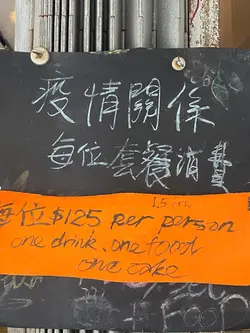 疫情關係
每位套餐消費
1.5 hrs
每位$125 per person
one drink. one food
one cake